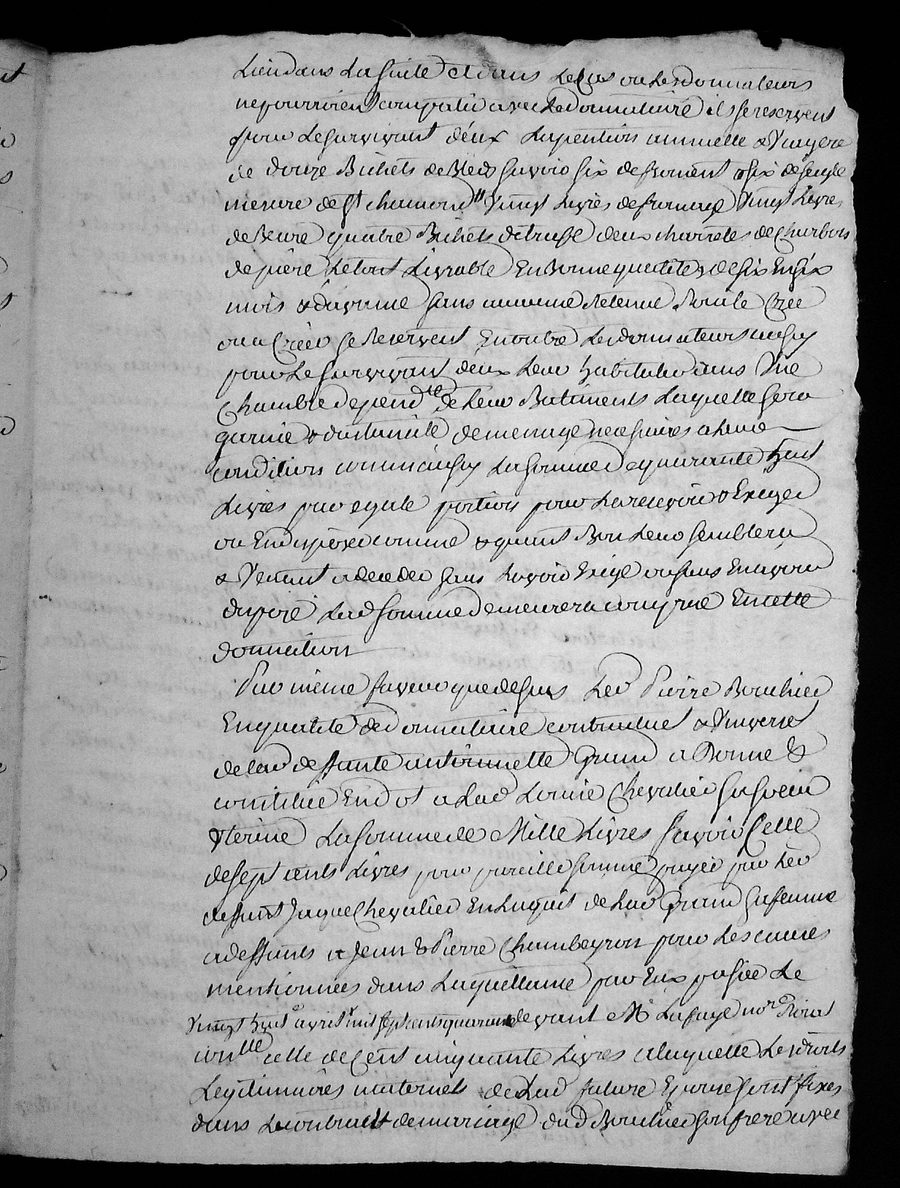 Lieu dans La Suite et dans Le Cas ou Lesdonnateurs
ne pourroient compatir avec Le donnataire ils se reservent
pour Le Survivant d'eux La pention annuelle & Viagere
de douze Bichets de Bled Savoir Six de froment & Six de Seigle
mesure de St chamond Vingt Livres de fromage Vingt Livres
de Beure quatre Bichets de truffe deux charretés de Charbon
de pierre Le tout Livrable En Bonne qualité & de Six En Six
mois & d'avance Sans aucune Retenue Pour le Crée
ou a Créér Se Reservent En outre Les donnateurs aussy
pour Le Survivant d'eux Leur habitation dans Une
Chambre depend.te de Leur Batiments Laquelle Sera
garnie & d'ustancile de menage necessaires a Leur
condition comme aussy La Somme de quarante huit
Livres par egale portion pour La recevoir & Exiger
ou En disposer comme & quant Bon Leur Semblera
& Venant a deceder Sans L'avoir Exigé ou Sans En avoir
disposé Lad Somme demeurera comprise En cette
donnation
Par même faveur que dessus Led Pierre Bouchier
En qualité de donnataire contractuel & Universel
de Lad deffunte antoinette Grand a Donné &
constitué En dot a Lad Louise Chevalier Sa Soeur
Uterine La Somme de Mille Livres Savoir Celle
de Sept cents Livres pour pareille Somme payée par Led
deffunt Jaque Chevalier En L'aquit de Lad Grand Sa femme
a deffunts Jean & Pierre Chambeyron pour Les causes
mentionnées dans La quittance par Eux passée Le
Vingt huit avril mil Sept cents quarante devant Me Lafaye nore Royal
celle de Cent cinquante Livres a laquelle Les droits
Legitimaires maternels de Lad future Epouse Sont fixés
dans Le contract de mariage dud Bouchier Son frere avec